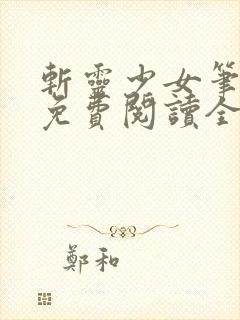 斬靈少女筆
免費閱讀全
鄭和